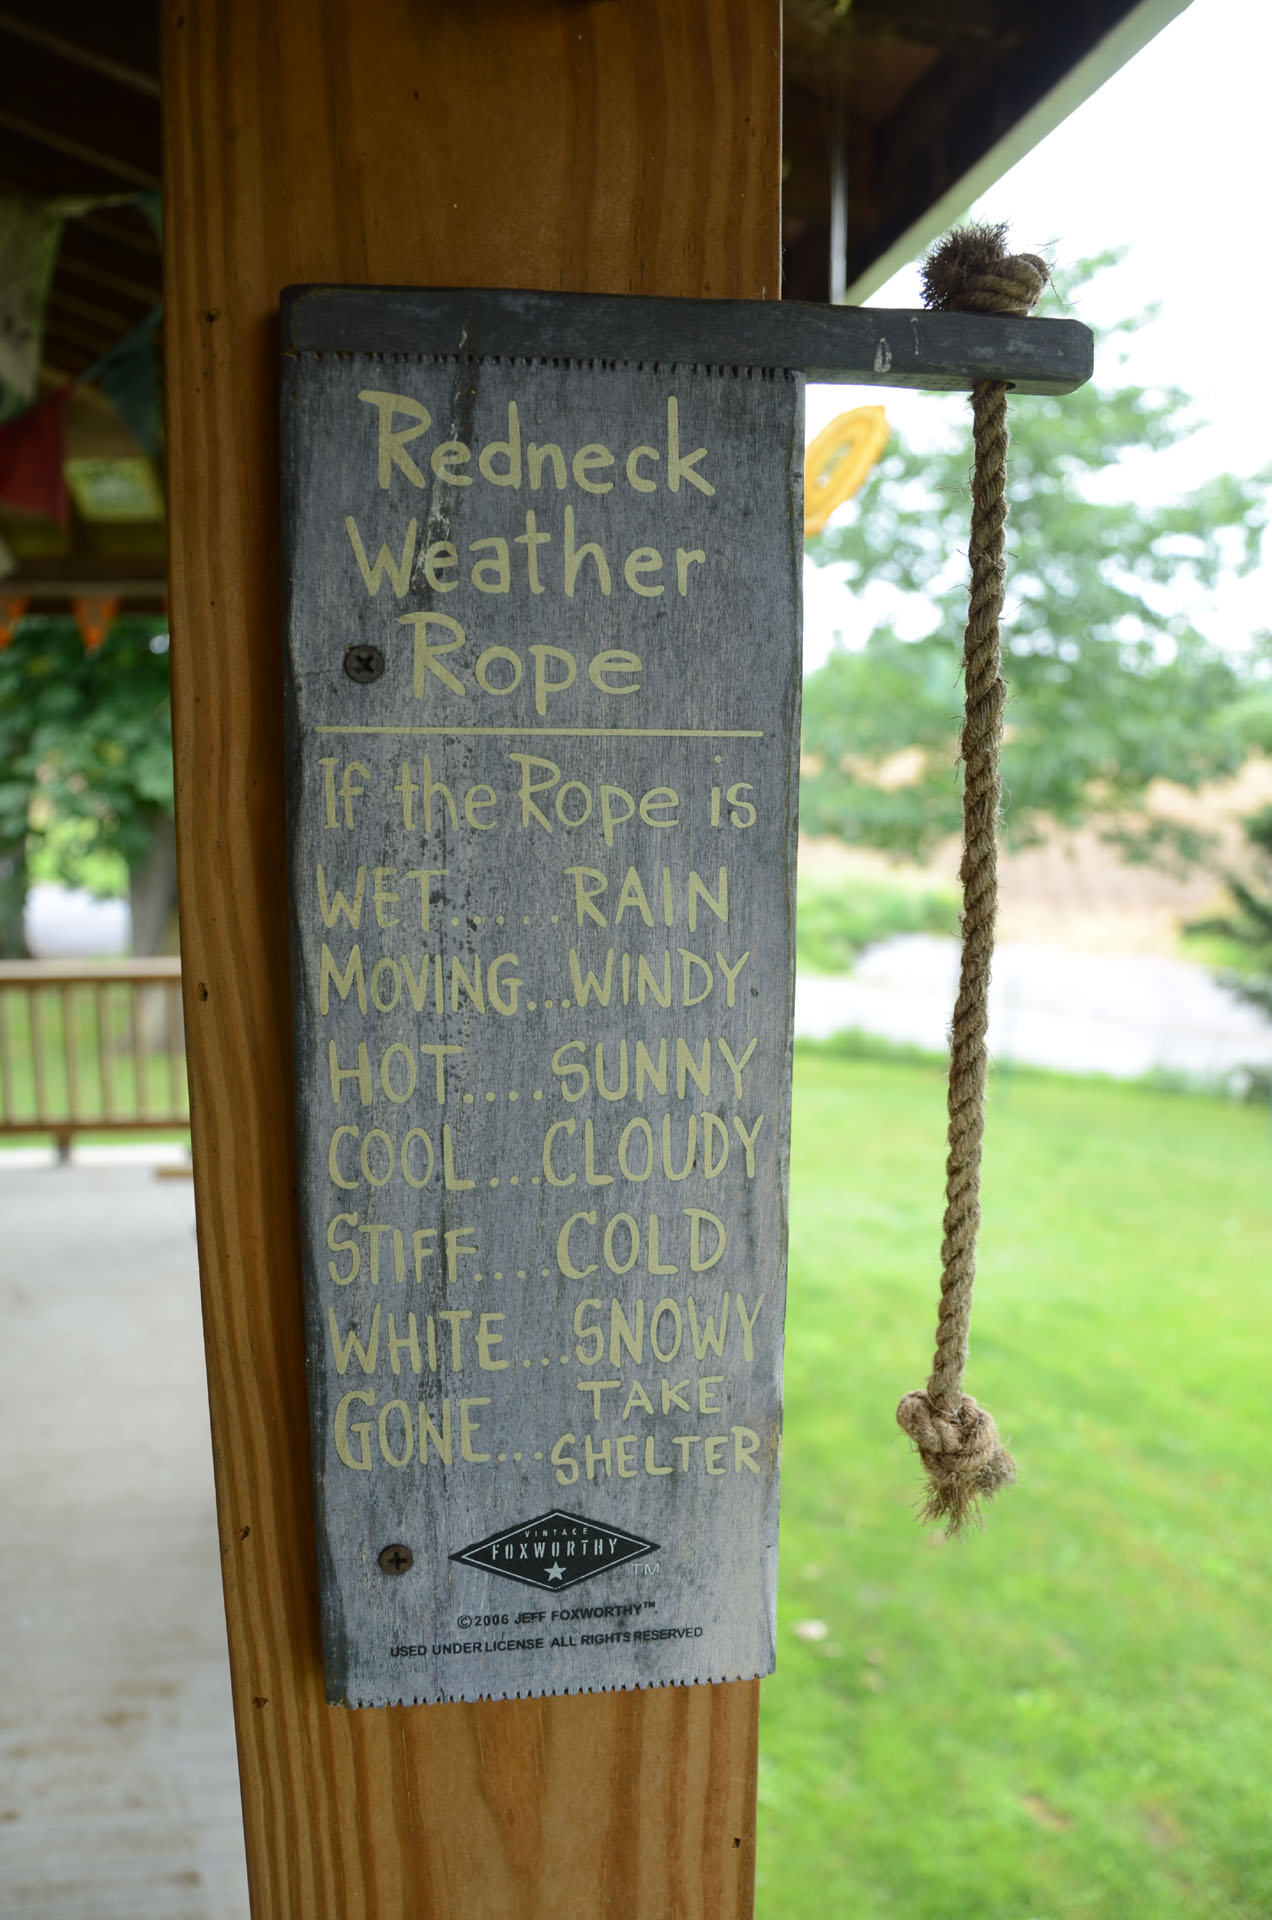 Redneck
Weather
Rope
If the Rope is
WET.....RAIN
MOVING...WINDY
HOT....SUNNY
COOL...CLOUDY
STIFF....COLD
WHITE...SNOWY
GONE...TAKE SHELTER
VINTAGE
FOXWORTHY
TM
©2006 JEFF FOXWORTHY™.
USED UNDER LICENSE ALL RIGHTS RESERVED